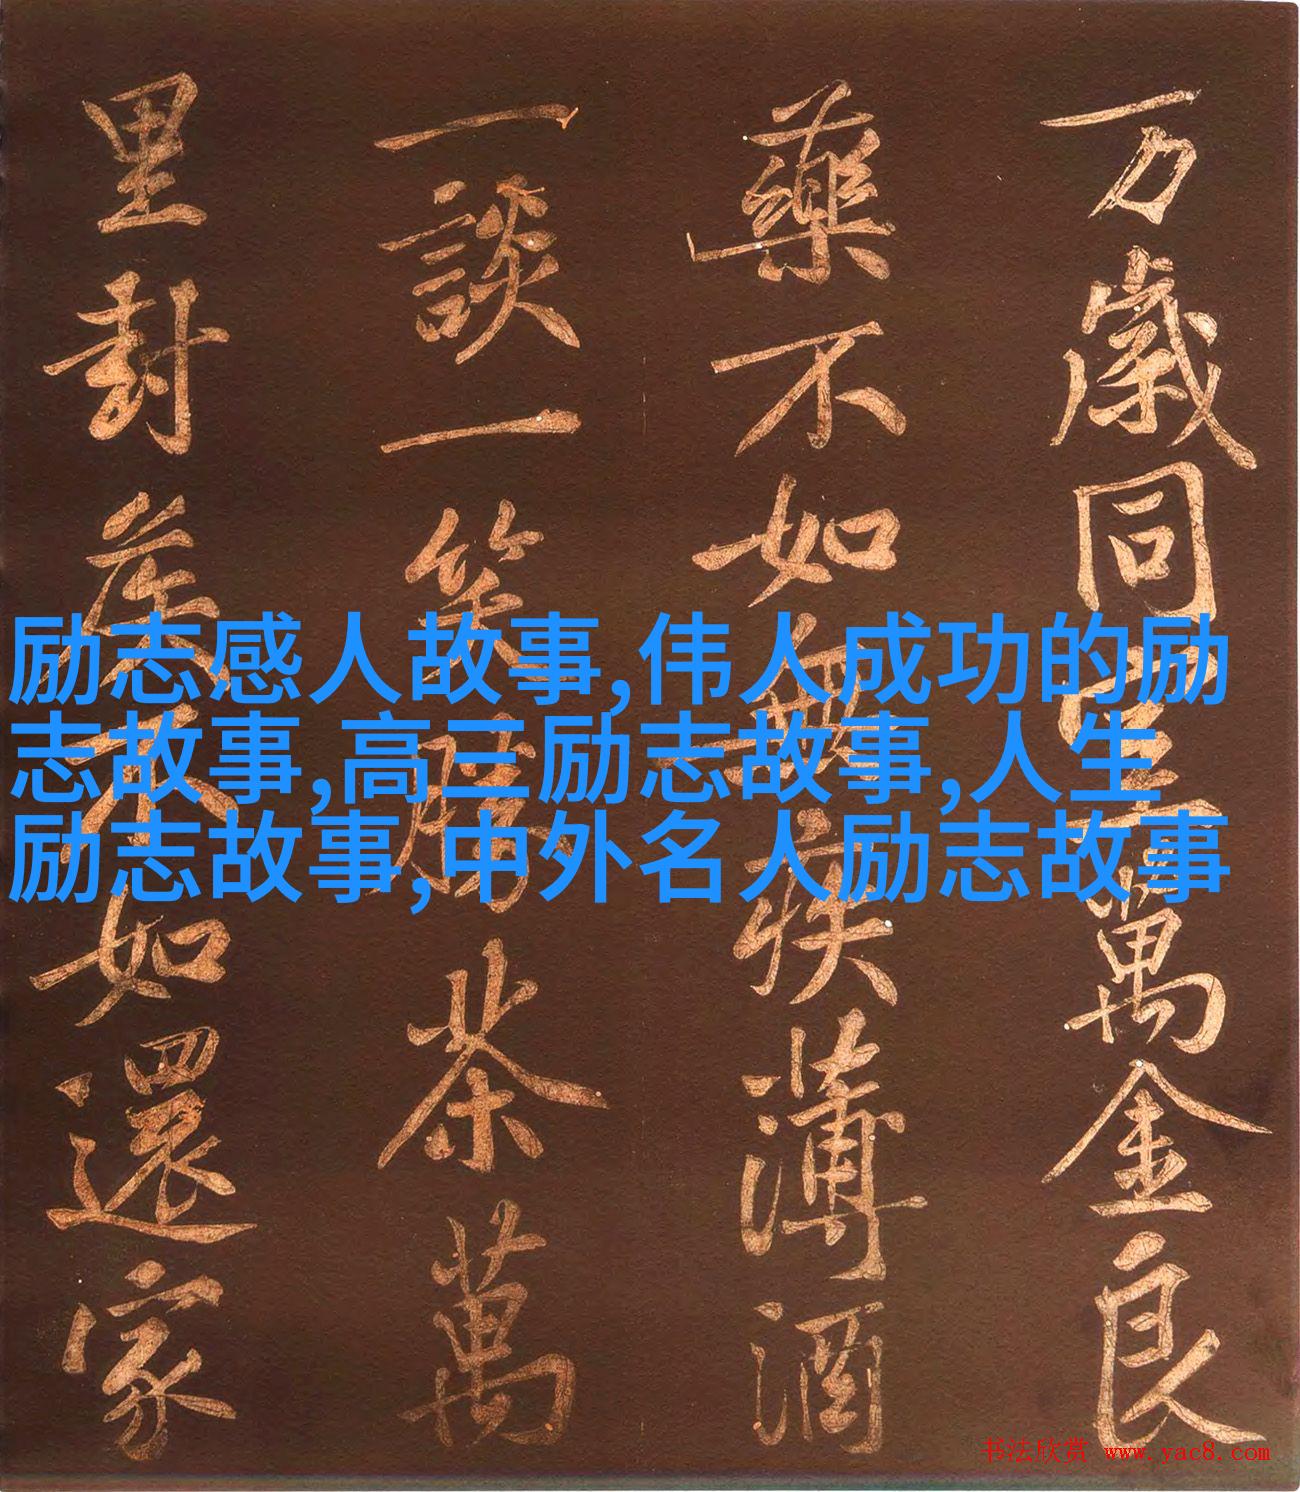 万歲同室萬金良
藥不如無疾薄酒
一談一笑勝茶萬
里封侯不如還家
励志感人故事,伟人成功的励
志故事,高三励志故事,人生
励志故事,中外名人励志故事
书法欣赏 www.yac8.com